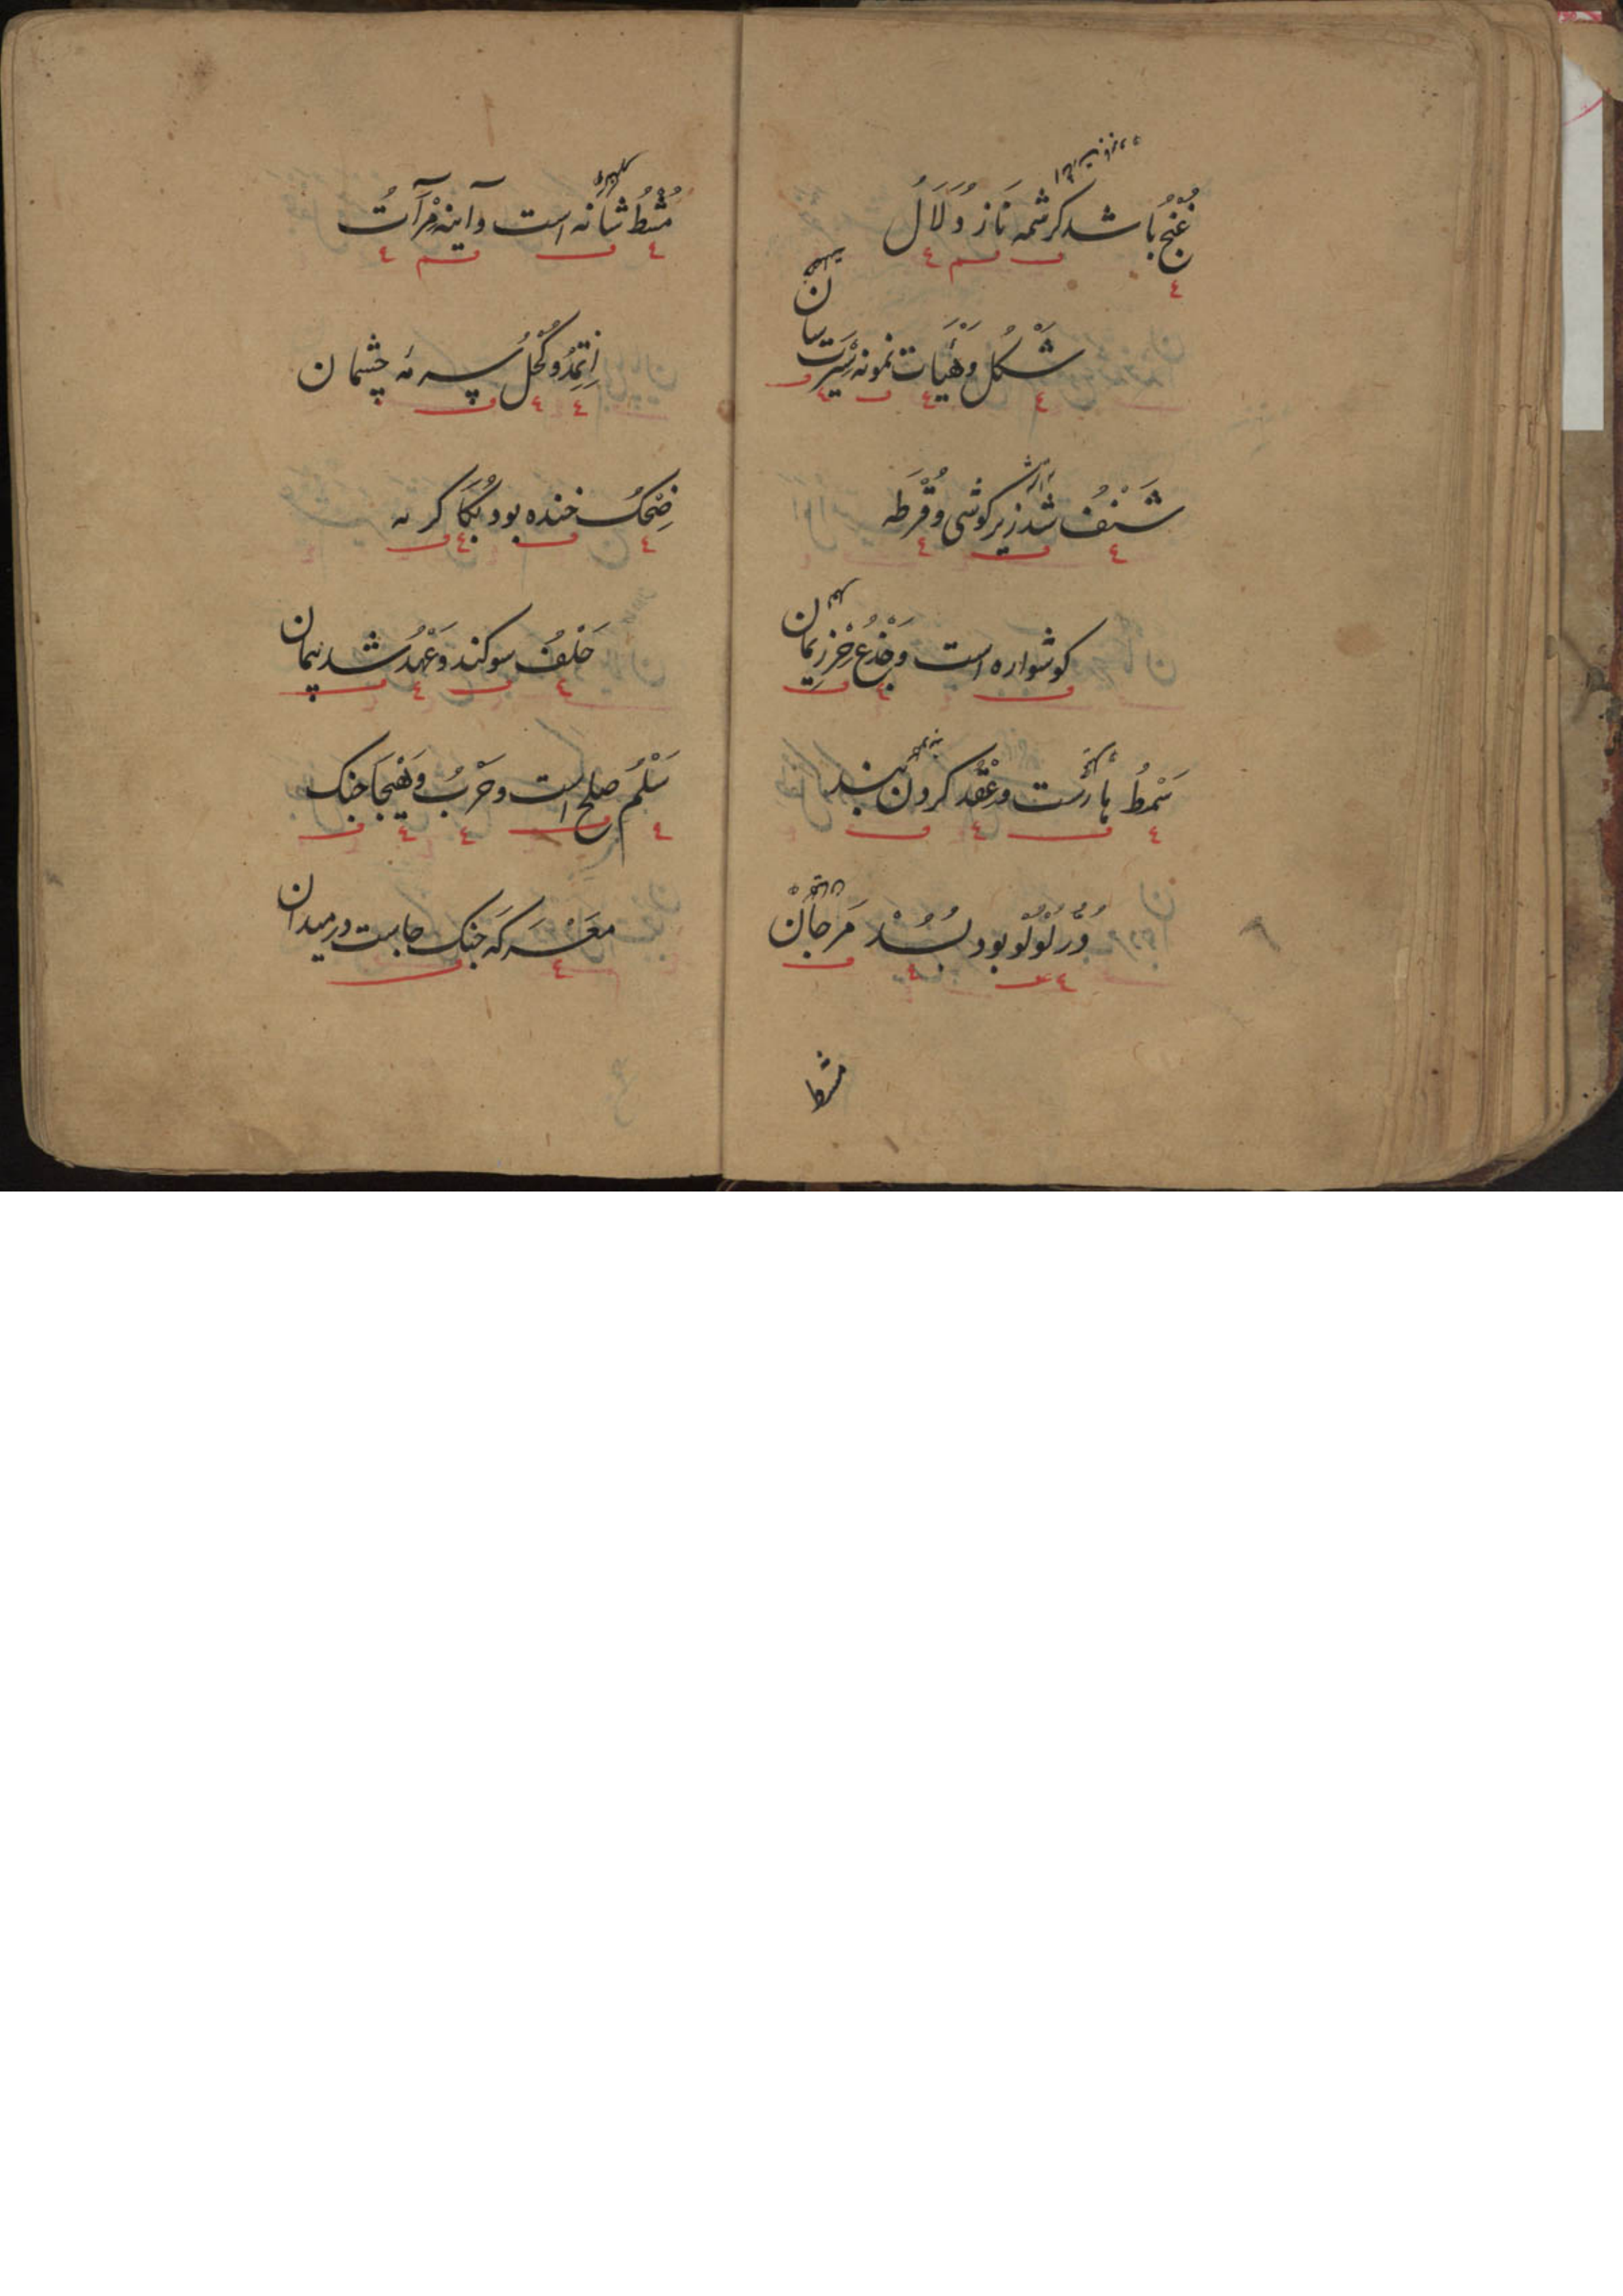 غُنْجُ باشد کرشمه نَاز و دَلَالُ
شَکْلُ و هَیْأَت نمونه سَیْرَت سان
شَنْفُ شد زیر کوشی و قُرْطَه
کوشواره است و جَذْعُ خَرَز یمان
سَمْطُ هارست و عَقْدُ کردن بند
دُرُّ لُؤْلُؤ بود بُسُدْ مَرجَانْ
مشط
مُشْطُ شانه است و آینه مِرْآتُ
اِثمِدُ و کُحْلُ سرمه چشمان
ضِحْکُ خنده بود بُکَا کریه
حَلْفُ سوکند و عَهْدُ شد پیمان
سَلْمُ صلح است و حَرْبُ و هَیْجَا جنک
معَرَکَه جنک جاست در میدان